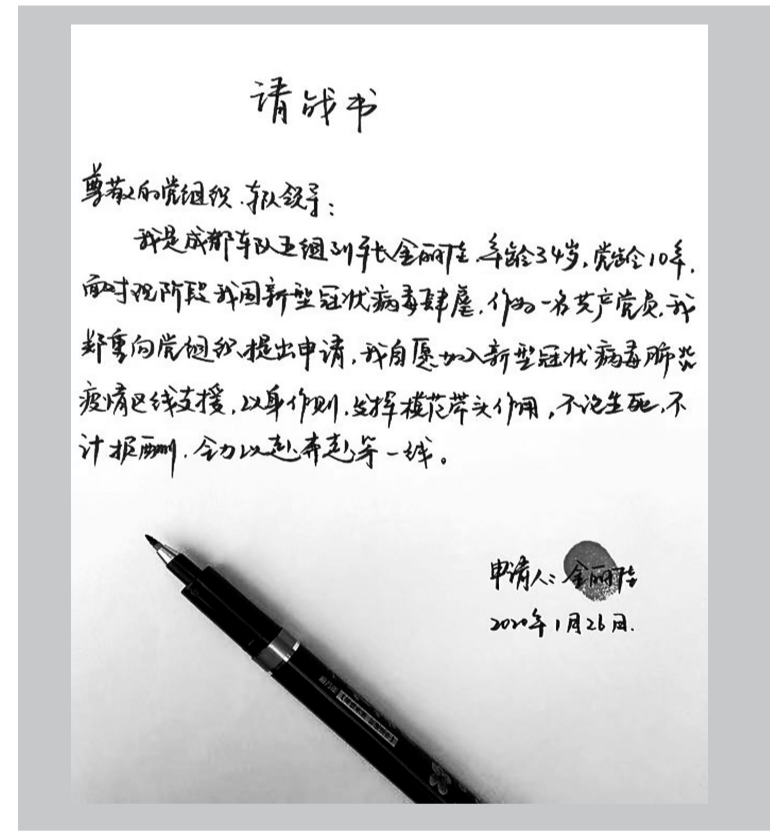 请战书
尊敬的党组织、车队领导：
我是成都车队五组列车长金丽陆，年龄34岁，党龄10年，
面对现阶段我国新型冠状病毒肆虐，作为一名共产党员，我
郑重向党组织提出申请，我自愿加入新型冠状病毒肺炎
疫情区线支援，以身作则，发挥模范带头作用，不论生死，不
计报酬，全力以赴奔赴第一线。
申请人：金丽陆
2020年1月26日.